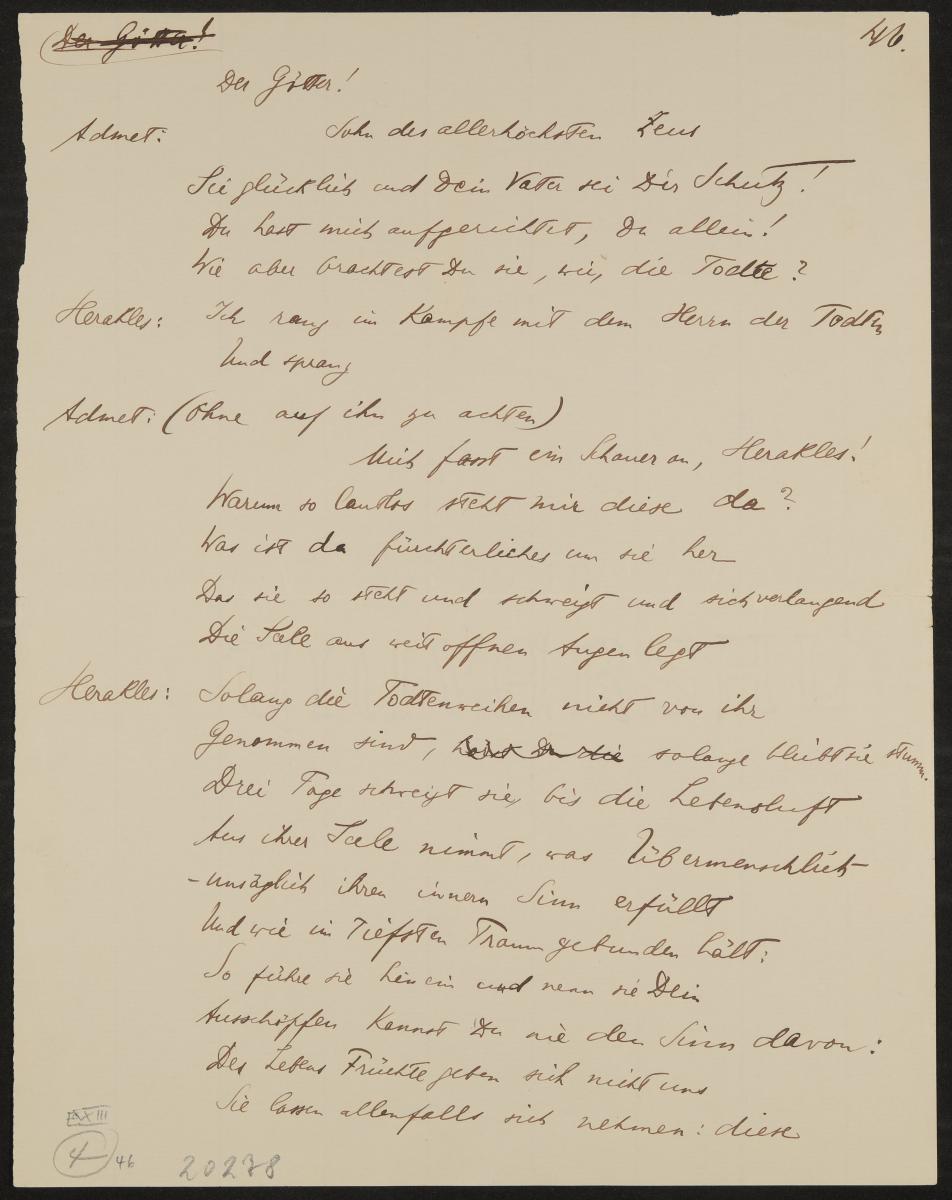 Der Götter!
46.
Der Götter!
Admet: Sohn des allerhöchsten Zeus
Sei glücklich und Dein Vater sei Dir Schutz!
Du hast mich aufgerichtet, Du allein!
Wie aber brachtest Du sie, wie, die Todte?
Herakles: Ich rang im Kampfe mit dem Herrn der Todten
Und sprang
Admet: (ohne auf ihn zu achten)
Mich fasst ein Schauer an, Herakles!
Warum so lautlos steht mir diese da?
Was ist da fürchterliches um sie her
Das sie so steht und schweigt und sich verlangend
Die Seele aus weit offnen Augen legt
Herakles: Solang die Todtenweihen nicht von ihr
Genommen sind, hörst Du sie solange bleibt sie stumm.
Drei Tage schweigt sie, bis die Lebensluft
Aus ihrer Seele nimmt, was Übermenschlich
-unsäglich ihren innern Sinn erfüllt
Und wie im Tiefsten Traum gebunden hält:
So führe sie hinein und nenn sie Dein
Ausschöpfen kannst Du nie den Sinn davon:
Des Lebens Früchte geben sich nicht uns
Sie lassen allenfalls sich nehmen: diese
XIII
4
46
20278